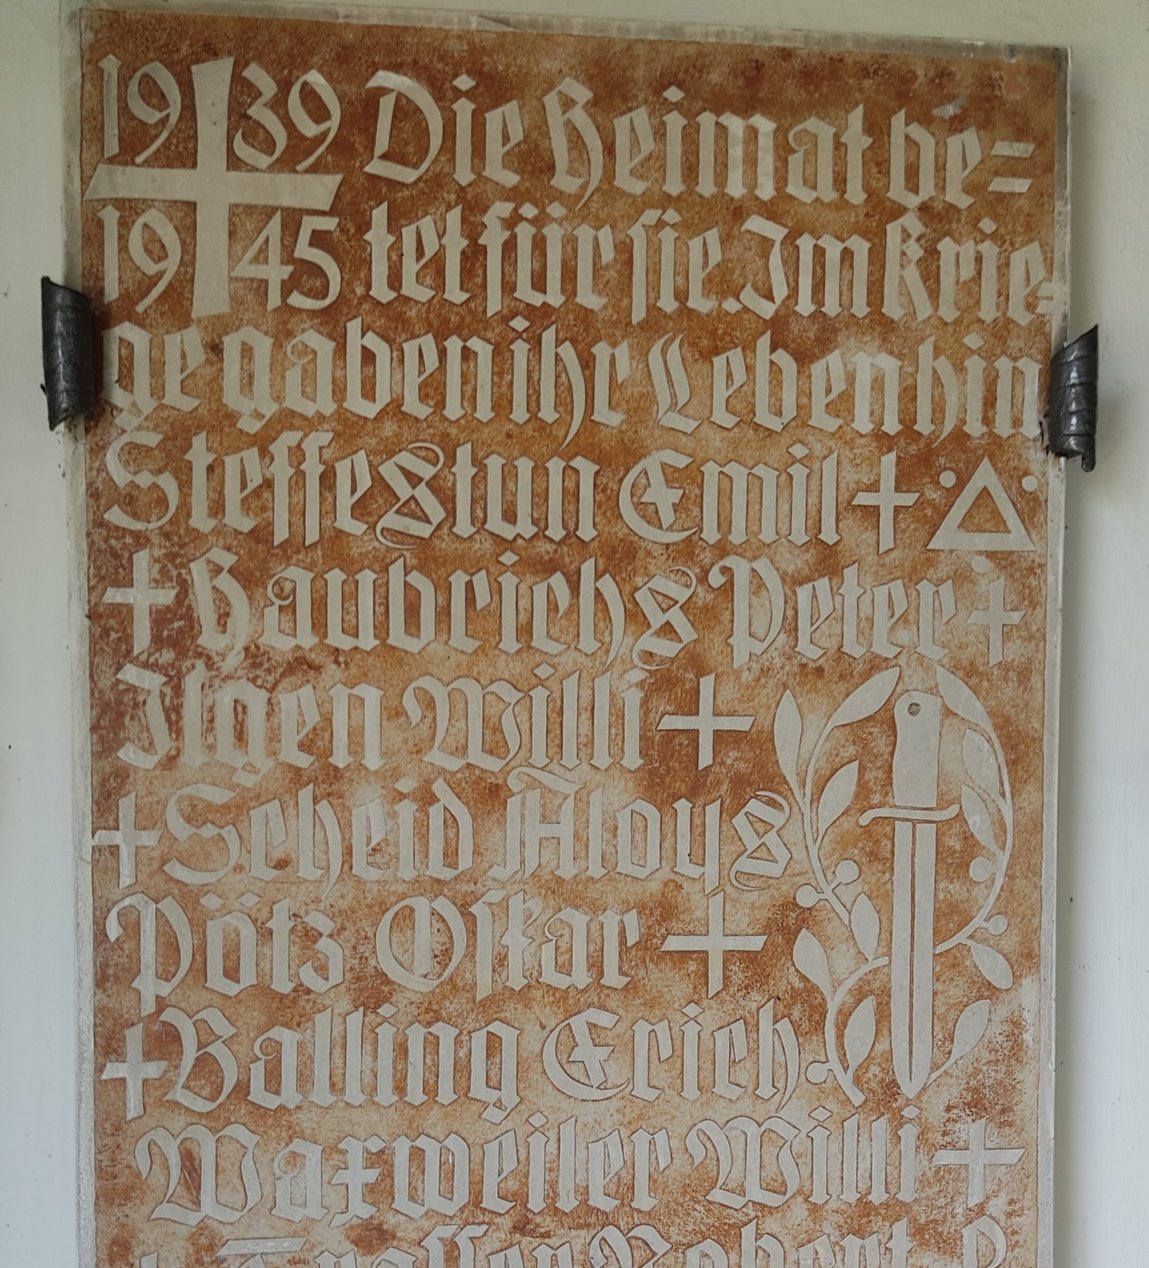 1939 Die Heimat be=
1945 tet für sie. Im Krie=
ge gaben ihr Leben hin
Steffestun Emil
Haubrichs Peter
Ilgen Willi
Scheid Aloys
Pötz Oskar
Balling Erich
Maxweiler Willi